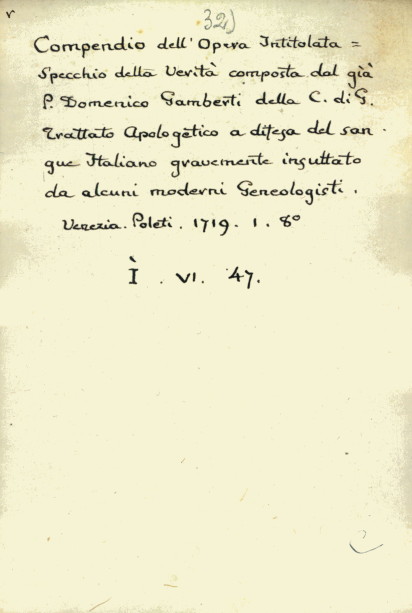 v
32)
Compendio dell'Opera Intitolata =
Specchio della Verità composta dal già
P. Domenico Gamberti della C. di G.
Trattato Apologètico a difesa del san-
gue Italiano gravemente insultato
da alcuni moderni Geneologisti.
Venezia. Poleti. 1719. 1. 8º
Ì . VI. 47.